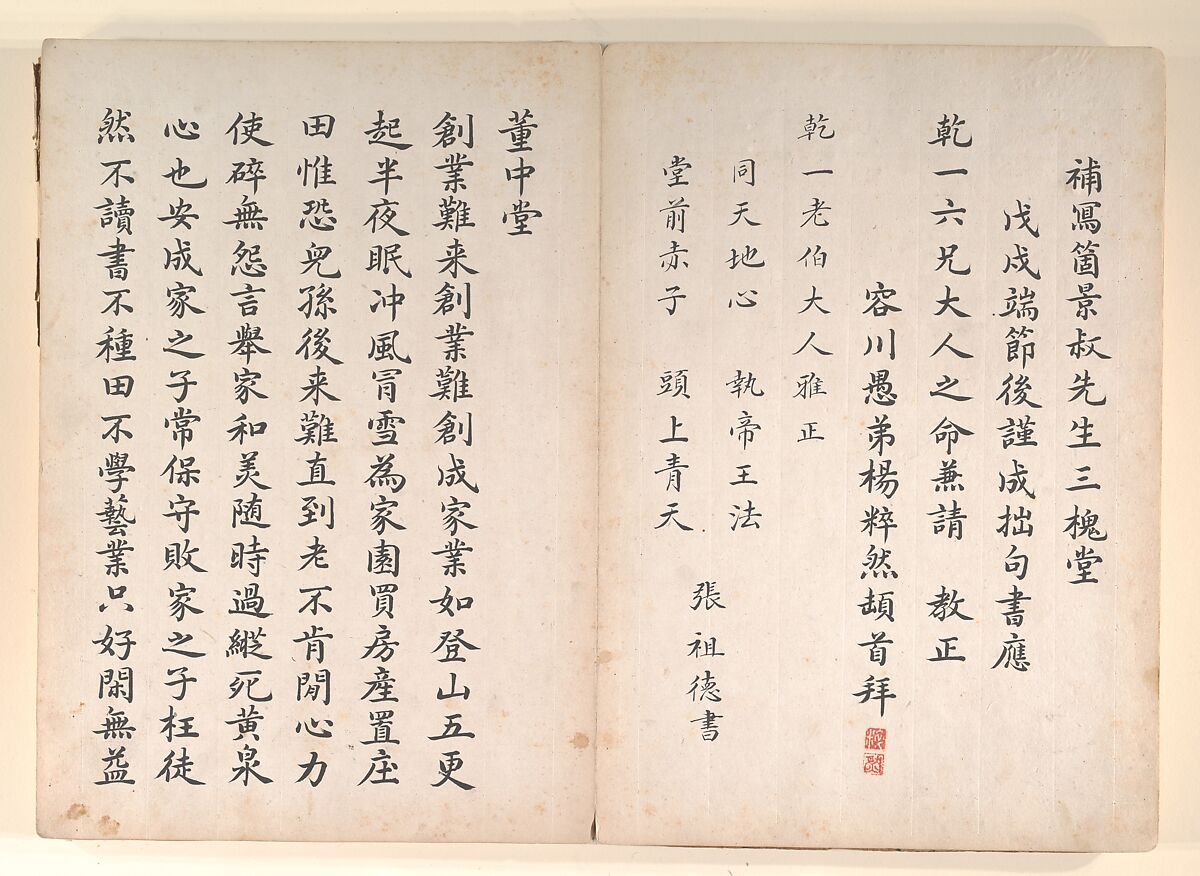 補寫箇景叔先生三槐堂
戊戌端節後謹成拙句書應
乾一六兄大人之命兼請 教正
容川愚弟楊粹然頓首拜
乾一老伯大人雅正
同天地心 執帝王法
堂前赤子 頭上青天
張祖德書
董中堂
創業難来創業難創成家業如登山五更
起半夜眠冲風冐雪為家園買房產置庄
田惟恐兒孫後来難直到老不肯閒心力
使碎無怨言舉家和美随時過縱死黃泉
心也安成家之子常保守敗家之子枉徒
然不讀書不種田不學藝業只好閑無益